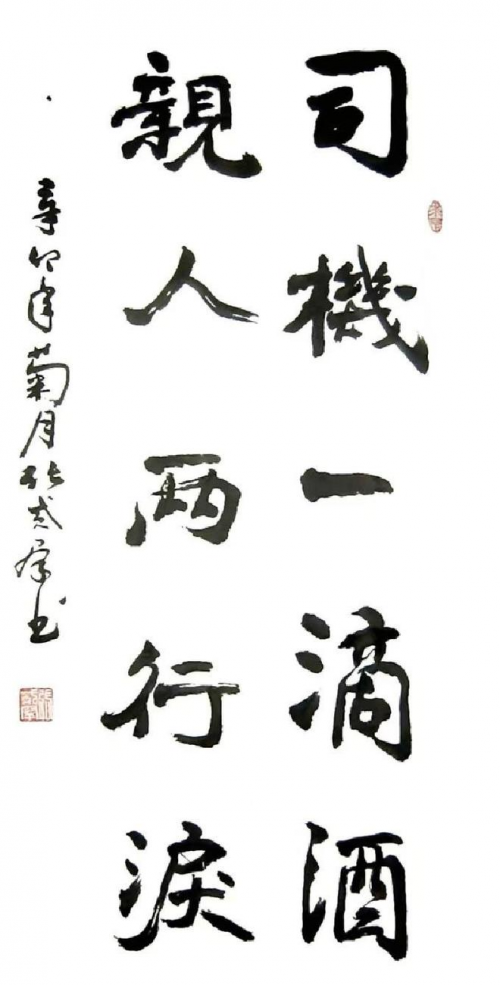 司機一滴酒
親人兩行淚
辛卯年菊月張書